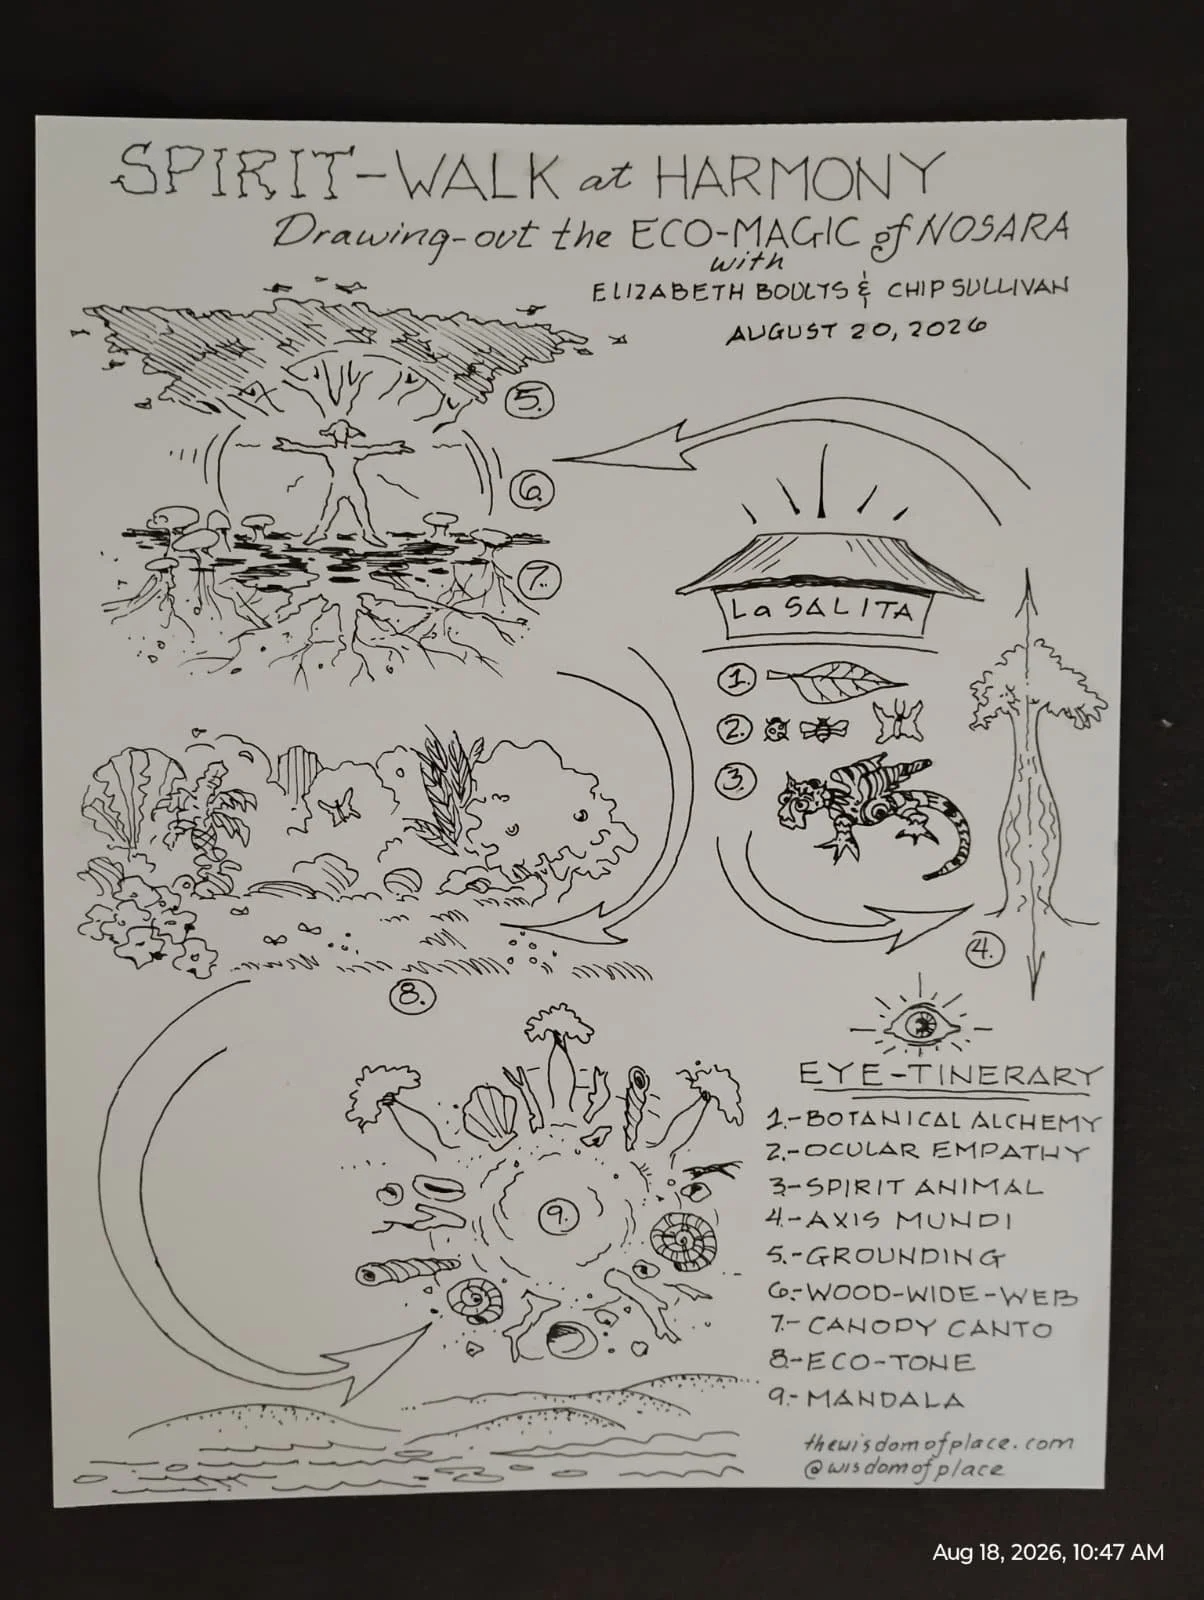 SPIRIT-WALK at HARMONY
Drawing-out the ECO-MAGIC of NOSARA
with
ELIZABETH BOULTS & CHIP SULLIVAN
AUGUST 20, 2026
5.
6.
7.
La SALITA
1.
2.
3.
4.
8.
9.
EYE-TINERARY
1.-BOTANICAL ALCHEMY
2.-OCULAR EMPATHY
3-SPIRIT ANIMAL
4-AXIS MUNDI
5.-GROUNDING
6.-WOOD-WIDE-WEB
7.-CANOPY CANTO
8.-ECO-TONE
9.-MANDALA
thewisdomofplace.com
@wisdomofplace
Aug 18, 2026, 10:47 AM